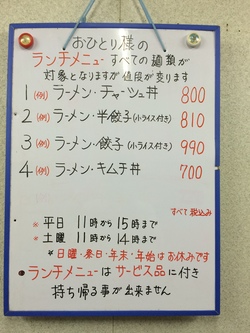 おひとり様の
ランチメニュー すべての麺類が
対象となりますが値段が変ります
1 (例) ラーメン・チャーシュ丼 800
2 (例) ラーメン・半餃子(小ライス付き) 810
3 (例) ラーメン・餃子(小ライス付き) 990
4 (例) ラーメン・キムチ丼 700
すべて税込み
※ 平日 11時から15時まで
※ 土曜 11時から14時まで
※ 日曜・祭日・年末・年始はお休みです
※ ランチメニューはサービス品に付き
持ち帰る事が出来ません